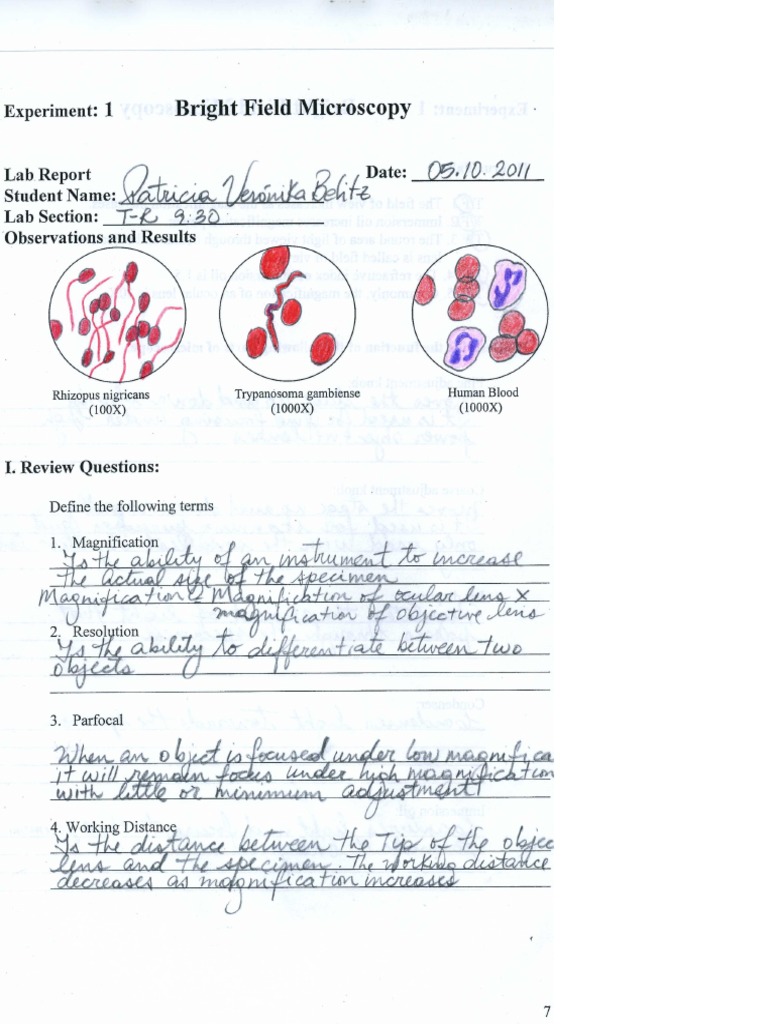 Experiment: 1 Bright Field Microscopy
Lab Report Date: 05.10.2011
Student Name: Patricia Verónika Belitz
Lab Section: T-R 9:30
Observations and Results
Rhizopus nigricans Trypanosoma gambiense Human Blood
(100X) (1000X) (1000X)
I. Review Questions:
Define the following terms
1. Magnification
Is the ability of an instrument to increase
the actual size of the specimen
Magnification = Magnification of ocular lens x
magnification of objective lens
2. Resolution
Is the ability to differentiate between two
objects
3. Parfocal
When an object is focused under low magnifica
it will remain focus under high magnification
with little or minimum adjustment
4. Working Distance
Is the distance between the Tip of the objec
lens and the specimen. The working distance
decreases as magnification increases
7